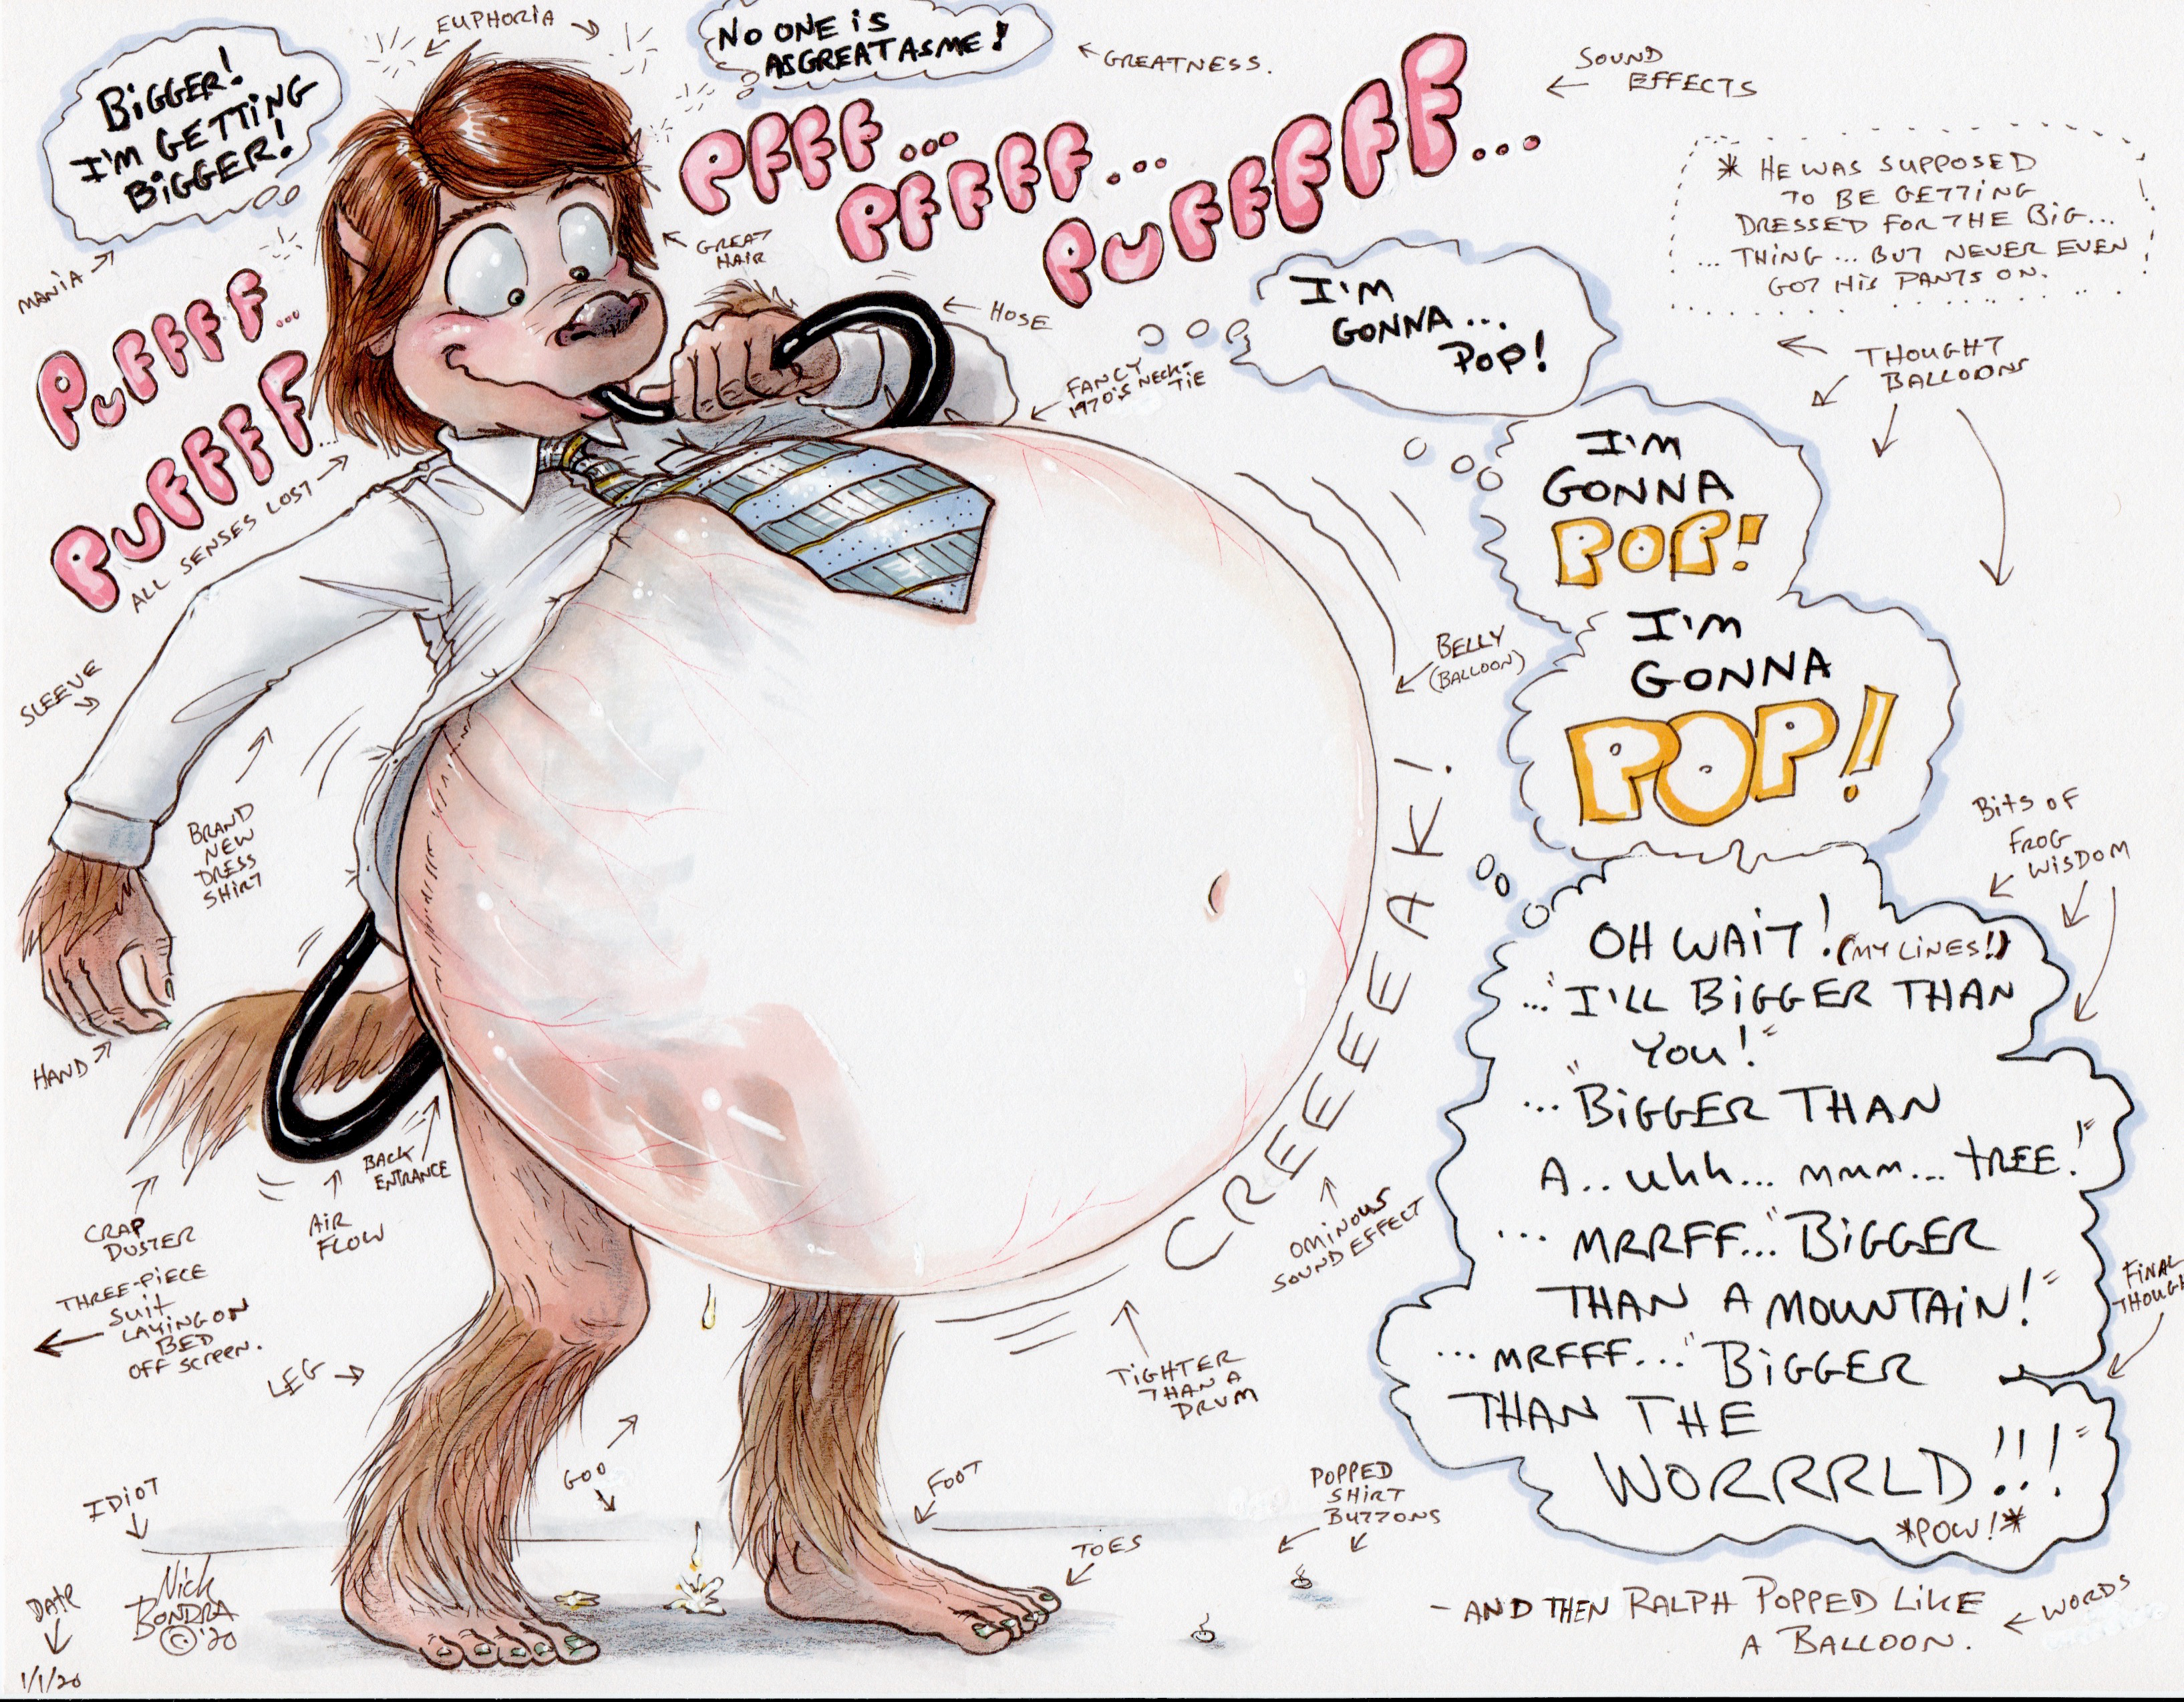 EUPHORIA
BIGGER!
I'M GETTING
BIGGER!
MANIA
NO ONE IS
AS GREAT AS ME!
GREATNESS.
SOUND
EFFECTS
PFFF...
PFFFFF...
PUFFFFFF...
GREAT
HAIR
HOSE
PUFFFF...
PUFFFFF...
ALL SENSES LOST
FANCY
1970'S NECK-
TIE
* HE WAS SUPPOSED
TO BE GETTING
DRESSED FOR THE BIG...
... THING... BUT NEVER EVEN
GOT HIS PANTS ON.
THOUGHT
BALLOONS
I'M
GONNA...
POP!
I'M
GONNA
POP!
I'M
GONNA
POP!
SLEEVE
BRAND
NEW
DRESS
SHIRT
HAND
BELLY
(BALLOON)
CREEEEAK!
OMINOUS
SOUND EFFECT
BITS OF
FROG
WISDOM
OH WAIT! (MY LINES!)
..."I'LL BIGGER THAN
YOU!"
..."BIGGER THAN
A.. uhh... mmm... TREE!"
... MRRFF..."BIGGER
THAN A MOUNTAIN!"
... MRFFF..."BIGGER
THAN THE
WORRRLD!!!"
*POW!*
FINAL
THOUGHT
CRAP
DUSTER
AIR
FLOW
BACK
ENTRANCE
THREE-PIECE
SUIT
LAYING ON
BED
OFF SCREEN.
LEG
GOO
FOOT
TOES
TIGHTER
THAN A
DRUM
POPPED
SHIRT
BUTTONS
IDIOT
Nick
BONDRA
© '20
DATE
1/1/20
- AND THEN RALPH POPPED LIKE
A BALLOON.
WORDS